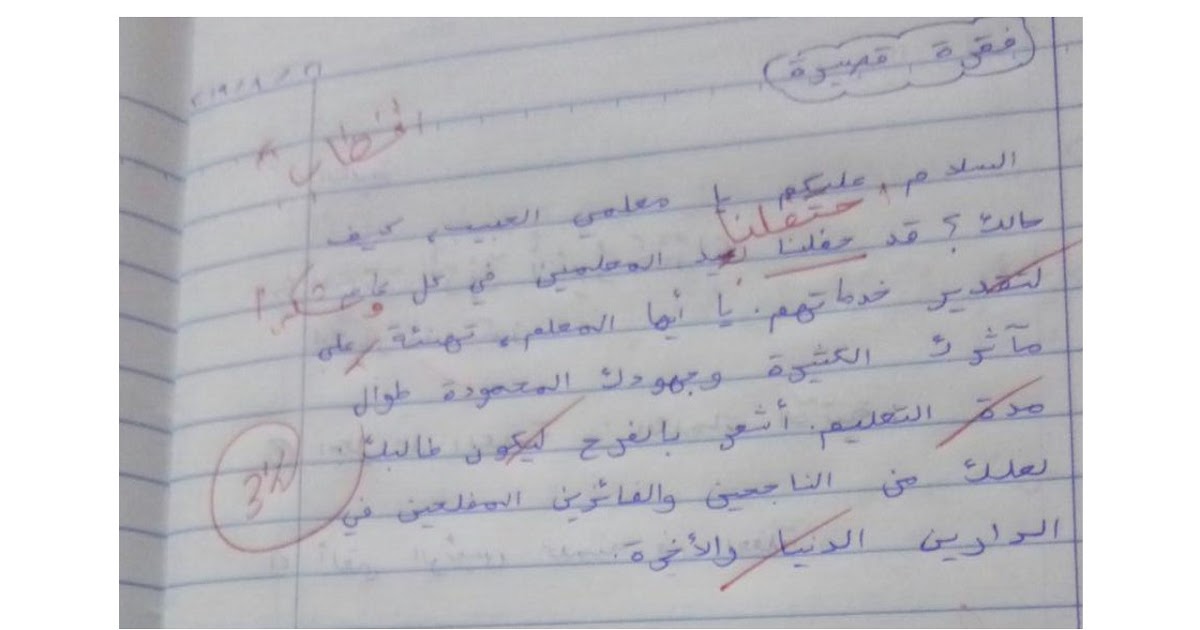 فقرة قصيرة
الخطاب
السلام عليكم يا معلمي الحبيب، كيف
احتفلنا
حالك؟ قد حفلنا لعيد المعلمين في كل عام
لتقدير خدماتهم. يا أيها المعلم، تهنئة على
مآثرك الكثيرة وجهودك المحمودة طوال
مدة التعليم. أشعر بالفرح ليكون طالبك
لعلك من الناجحين والفائزين المفلحين في
الدارين الدنيا والأخرة.